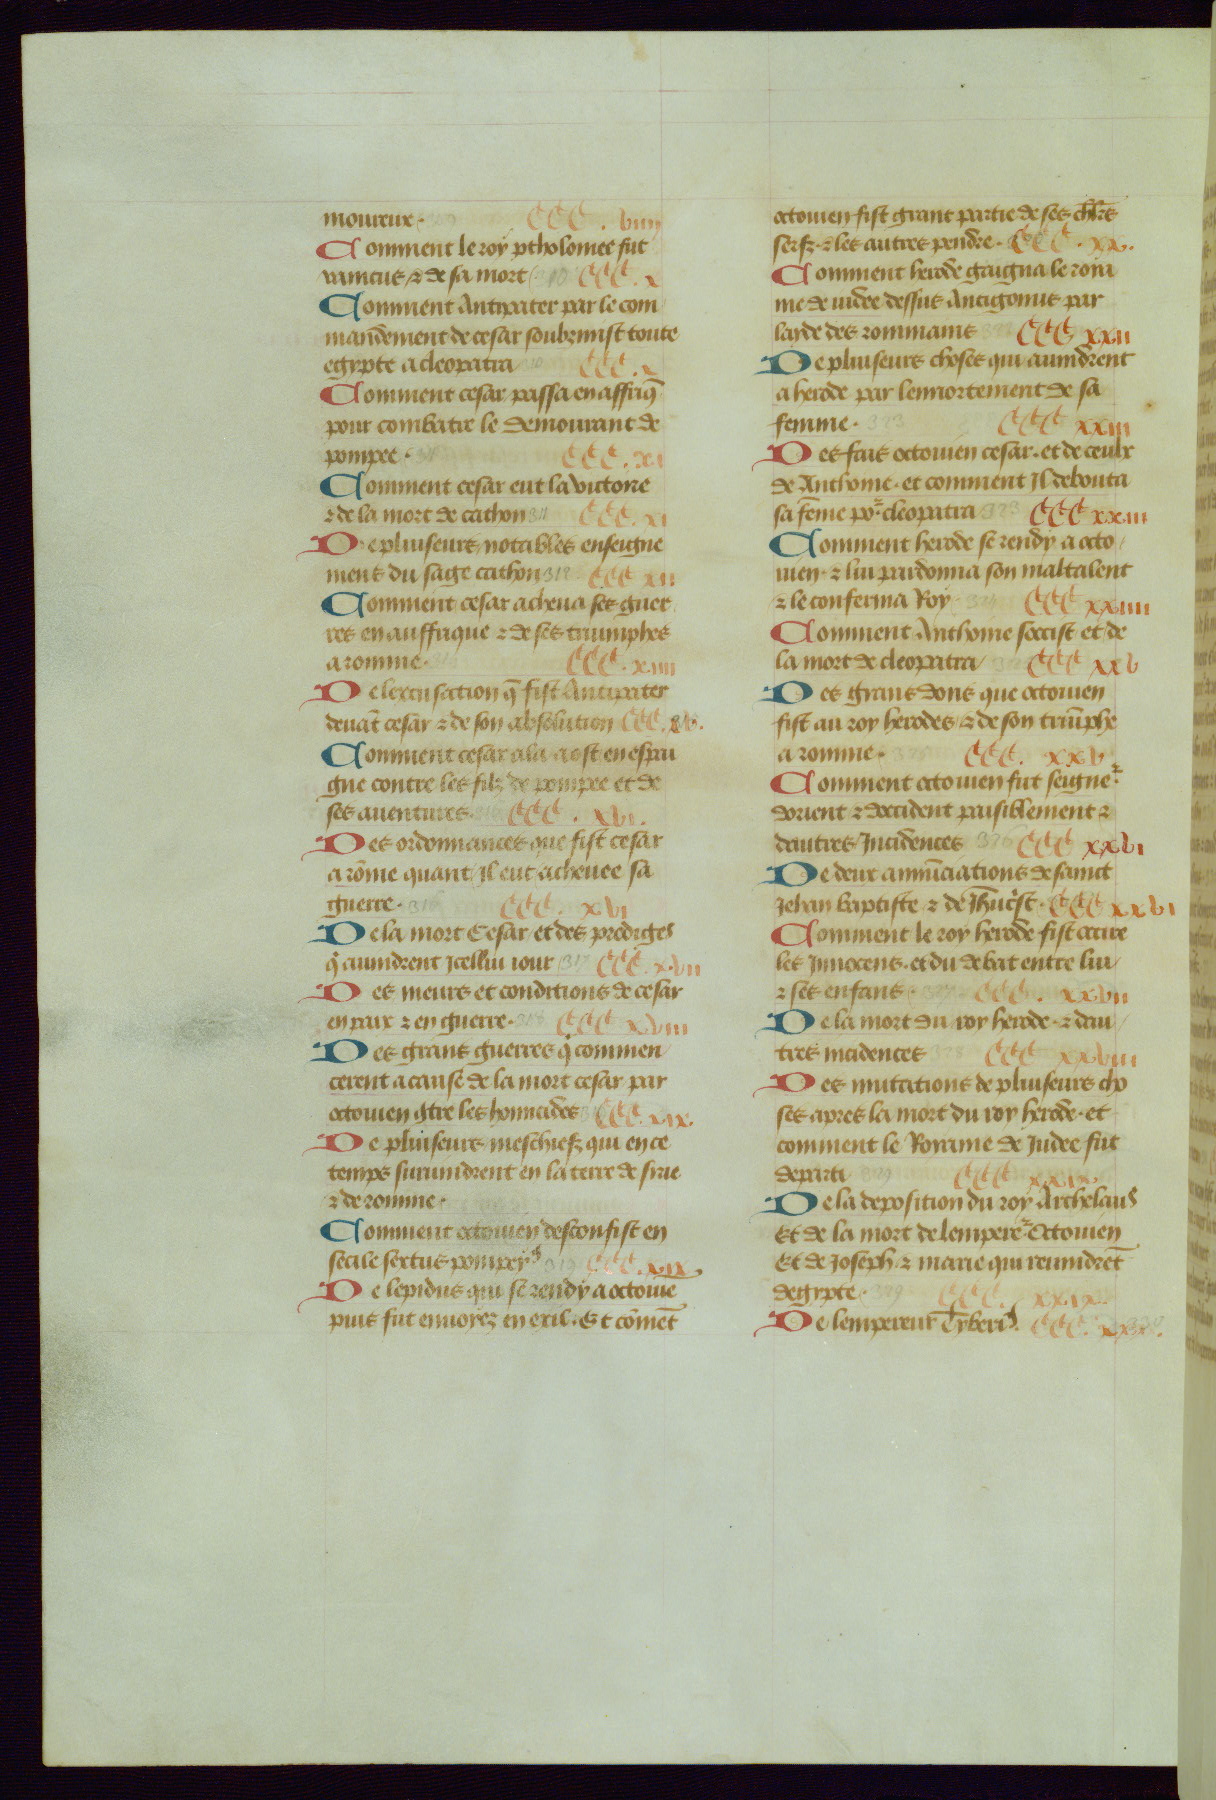 moureux. CCC. viiij
Comment le roy ptholomee fut
vaincus / ⁊ de sa mort 310 CCC. x
Comment Antipater par le com
mandement de cesar soubzmist toute
egypte a cleopatra 310 CCC. x
Comment cesar passa en affriq̄
pour combatre le demourant de
pompee. CCC. xi
Comment cesar eut la victoire
⁊ de la mort de cathon 311 CCC. xi
De pluiseurs notables enseigne
mens du sage cathon 312 CCC xii
Comment cesar acheua ses guer
res en auffrique ⁊ de ses triumphes
a romme. CCC. xiiii
De lexcusation q̄ fist Antipater
deuāt cesar ⁊ de son absolution CCC. xv.
Comment cesar ala a ost en espai
gne contre les filz de pompee et de
ses auentures. 316 CCC. xvi.
Des ordonnances que fist cesar
a rōme quant Il eut acheuee sa
guerre. 316 CCC. xvi
De la mort Cesar et des prodiges
q̇ auindrent Icellui iour 317 CCC. xvii
Des meurs et conditions de cesar
en paix ⁊ en guerre. 318 CCC xviii
Des grans guerres q̇ commen
cerent a cause de la mort cesar par
octouien ꝯtre les homicides CCC. xix.
De pluiseurs meschiefz qui en ce
temps suruindrent en la terre de sirie
⁊ de romme.
Comment octouien desconfist en
secile sextus pompeyꝰ 319 CCC. xix.
De lepidus qui se rendy a octouiē
puis fut enuoyez en exil. Et cōmēt
octouien fist grant partie de ses chl̄rs
serfz. ⁊ les autres pendre. CCC. xx.
Comment herode gaigna le roya
me de iudee dessus Antigonus par
layde des rommains 322 CCC xxii
De pluiseurs choses qui auindrent
a herode par lenmortement de sa
femme. 323 CCC xxiii
Des fais octouien cesar. et de ceulx
de Anthoine. et comment Il debouta
sa fēme poᷣ cleopatra 323 CCC xxiii
Comment herode se rendy a octo
uien. ⁊ lui pardonna son maltalent
⁊ le conferma Roy 324 CCC xxiiii
Comment Anthoine soccist et de
la mort de cleopatra 325 CCC xxv
Des grans dons que octouien
fist au roy herodes ⁊ de son triūphe
a romme. 325 CCC. xxv
Comment octouien fut seigneᷣ
dorient ⁊ doccident paisiblement ⁊
dautres Incidences 326 CCC xxvi
De deux annūciations de sainct
Jehan baptiste ⁊ de Jh̄ucrist. CCC xxvi
Comment le roy herode fist occire
les Innocens. et du debat entre lui
⁊ ses enfans. 327 CCC. xxvii
De la mort du roy herode. ⁊ dau
tres incidences 328 CCC xxviii
Des mutations de pluiseurs cho
ses apres la mort du roy herode. et
comment le Royame de Judee fut
departi 329 CCC xxix.
De la deposition du roy Archelaus
Et de la mort de lempereᷣ Octouien
Et de Joseph ⁊ marie qui reuindrēt
degypte. 329 CCC. xxix.
De lempereur Tyberiꝰ. CCC. xxx. 330